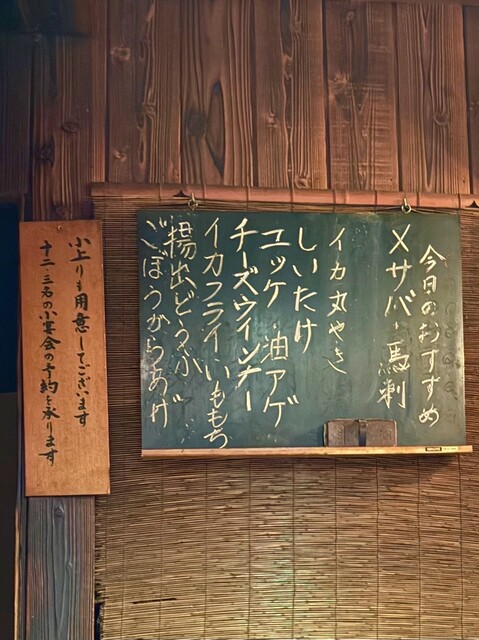 今日のおすすめ
メサバ、馬刺
イカ丸やき
しいたけ
ユッケ、油アゲ
チーズウインナー
イカフライ、いももち
揚出どうふ
ごぼうからあげ
小上りも用意してございます
十二、三名の小宴会の予約を承ります